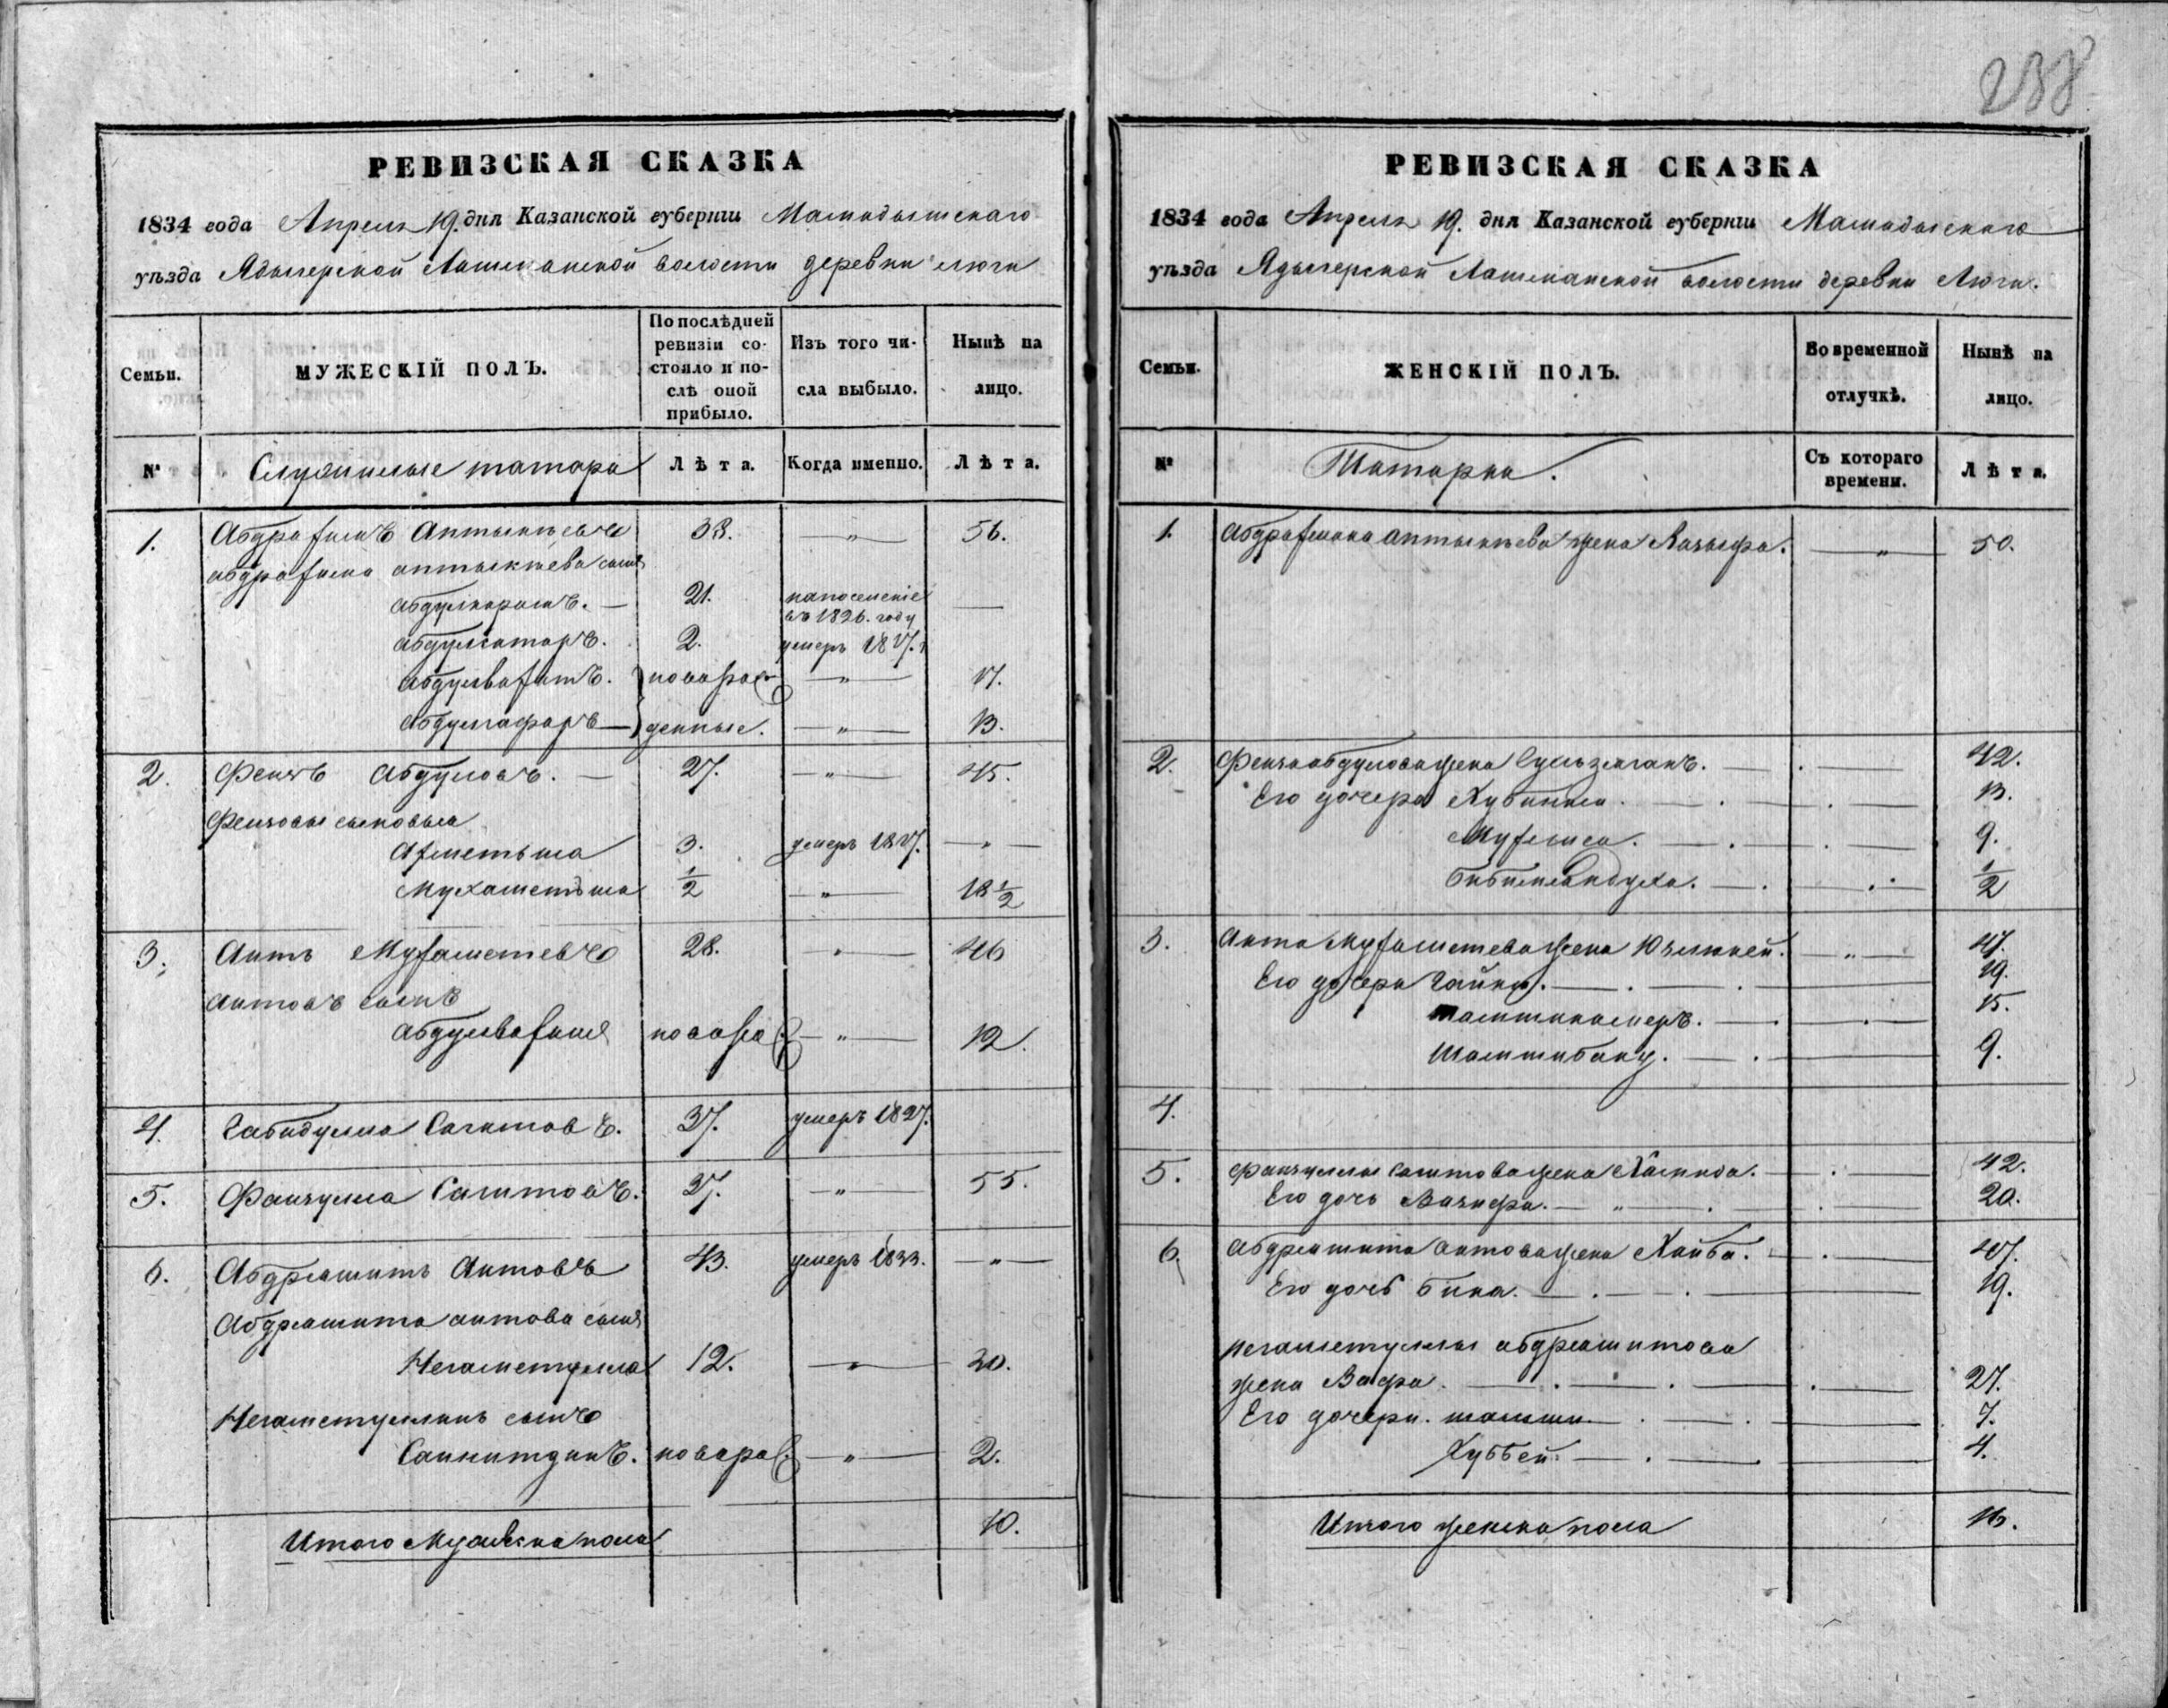 238
РЕВИЗСКАЯ СКАЗКА
1834 года Апреля 19. дня Казанской губерніи Мамадышскаго
уѣзда Адыгерской Лашманской волости деревни Люги
Семьи.
МУЖЕСКІЙ ПОЛЪ.
По послѣдней ревизіи состояло и послѣ оной прибыло.
Изъ того числа выбыло.
Нынѣ на лицо.
№ Служилые татара Лѣта. Когда именно. Лѣта.
1. Абдрахимъ Аптыкѣевъ 38. — „ — 56.
Абдрахима аптыкѣева сынъ
абдулкаримъ. — 21. на поселеніе въ 1826. году —
абдулсатаръ. 2. умеръ 1817.
абдулвахитъ. новорож — „ — 17.
абдулгафаръ — денные. — „ — 13.
2. Феизъ Абдуловъ. — 27. — „ — 45.
Феизовы сыновья
Ахметьша 3. умеръ 1817. — „ —
Мухаметьша 1/2 — „ — 18 1/2
3. Аитъ Мухаметевъ 28. — „ — 46
Аитовъ сынъ
абдулвахитъ новорож — „ — 12.
4. Габидулла Сагитовъ. 37. умеръ 1827.
5. Файзулла Сагитовъ. 37. — „ — 55.
6. Абдрашитъ Аитовъ 43. умеръ 1833. — „ —
Абдрашита аитова сынъ
Негаметулла 12. — „ — 30.
Негаметуллинъ сынъ
Саинитдинъ. новорож — „ — 2.
Итого Мужеска пола 10.
РЕВИЗСКАЯ СКАЗКА
1834 года Апреля 19. дня Казанской губерніи Мамадыскаго
уѣзда Адыгерской Лашманской волости деревни Люги.
Семьи.
ЖЕНСКІЙ ПОЛЪ.
Во временной отлучкѣ.
Нынѣ на лицо.
№ Татарки. Съ котораго времени. Лѣта.
1. Абдрахмана аптыкѣева жена — „ — 50.
2. Феиза абдулова жена 42.
Его дочери 13.
9.
1/2
3. Аита Мухаметева жена — „ — 47.
Его дочери 19.
15.
Шамшибану. 9.
4.
5. Файзуллы Сагитова жена Хамида. 42.
Его дочь Вазифа. — „ — 20.
6. Абдрашита аитова жена Хаиба. 47.
Его дочь Бика. 19.
Негаметуллы абдрашитова
жена Вафа. 27.
Его дочери. шамши 7.
Хуббей. 4.
Итого женска пола 16.